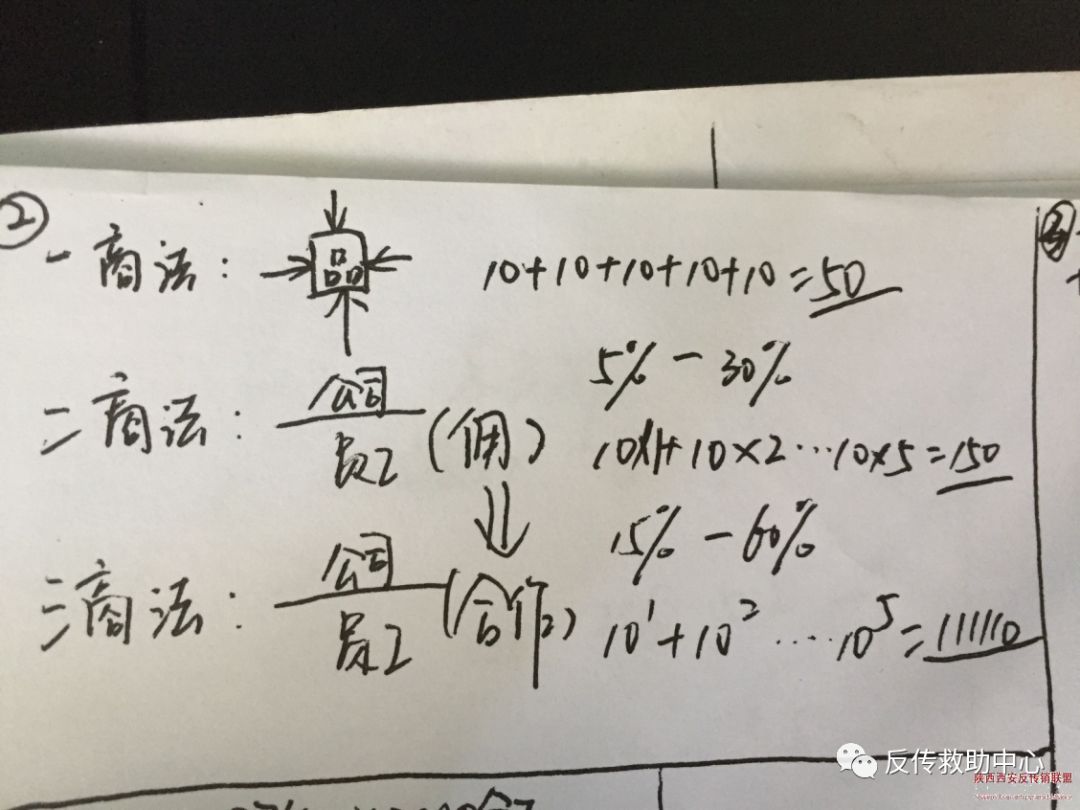 ②
一商法: 品 10+10+10+10+10=50
5%-30%
二商法: 公司 员工 (佣) 10×1+10×2…10×5=150
15%-60%
三商法: 公司 员工 (合作) 10¹+10²…10⁵=111110
反传救助中心
陕西西安反传销联盟